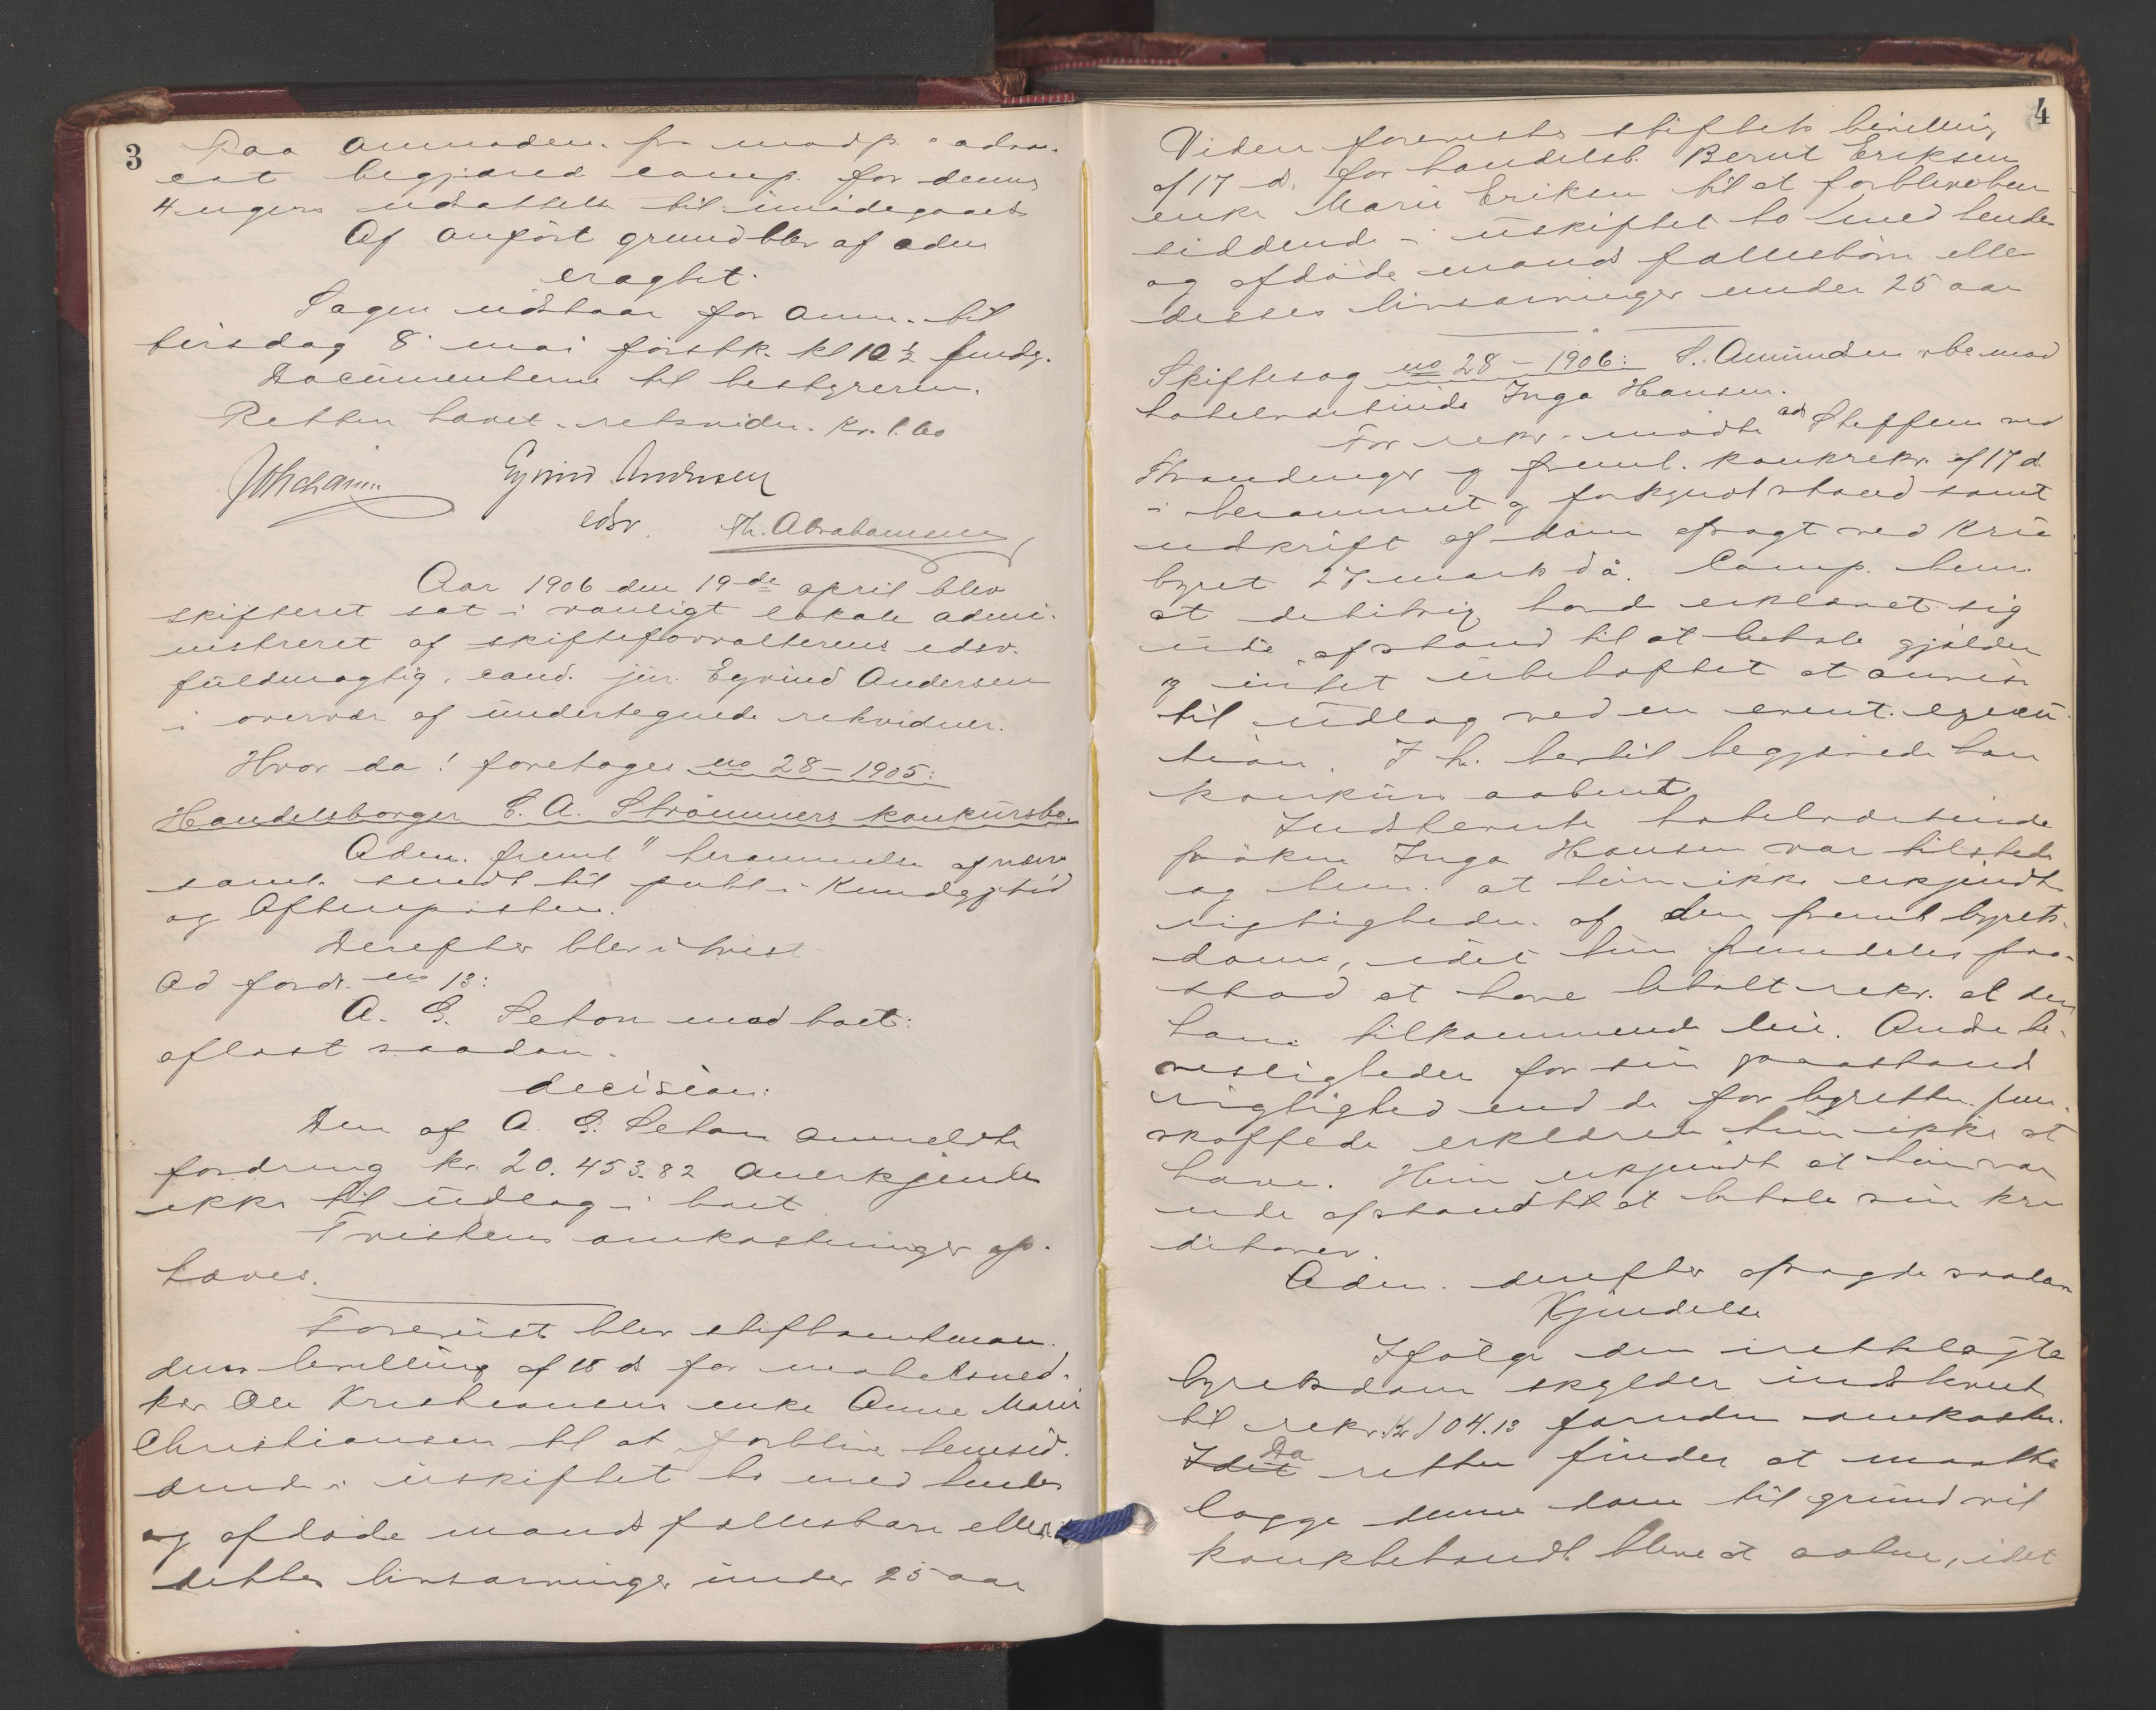 3
Paa anmoden. fra modp.s advo-
cat begjæred comp. for denne
4 ugers udsættelse til imødegaaelse
Af anført grund blev af adm
eragtet.
Sagen udstaar for anm. til
tirsdag 8. mai førstk. kl 10 ½ fmdg.
Documenterne til bestyreren.
Retten hævet. retsvidn. Kr. 1.60
Eyvind Andersen
edsv. Th. Abrahamsen
Aar 1906 den 19de april blev
skifteret sat i vanligt lokale admi-
nistreret af skifteforvalterens edsv.
fuldmægtig, cand. jur. Eyvind Andersen
i overvær af undertegnede retsvidner.
Hvor da! foretoges no 28 – 1905:
Handelsborger C. A. Strømmers konkursbo.
Adm. freml. berammelse
samt sendt til publ i Kundgjtid
og Aftenposten.
Derefter blev i tvist
Ad fordr. no 13:
A. G. Seton mod boet:
aflæst saadan.
decision:
Den af A. G. Seton anmeldte
fordring kr. 20.453.82 anerkjendes
ikke til udlæg i boet
Tvistens omkostninger op-
hæves.
Forevist blev stiftamtman-
dens bevilling af 18 ds for møbelsned-
ker Ole Kristiansens enke Anne Marie
Christiansen til at forblive hensid-
dende i uskiftet bo med hendes
og afdøde mands fællesbarn eller
dettes livsarvinger under 25 aar
4
Videre forevistes stiftets bevilling
af 17 ds. for handelsb. Bernt Eriksens
enke Marie Eriksen til at forblive hen
siddende i uskiftet bo med hendes
og afdøde mands fællesbørn eller
disses livsarvinger under 25 aar
Skiftesag no 28 – 1906: S. Amundsen mod
hotelværtinde Inga Hansen.
For rekv. mødte ads Steffens ved
og freml. konkrekv. af 17 d.
i berammet og forkyndt stand samt
udskrift af dom afsagt ved Kria
byret 27 marts d å. Comp. bem.
at debitrix havde erklæret sig
ude af stand til at betale gjælden
og intet ubehæftet at anvise
til udlæg ved en event. execu-
tion. I h. hertil begjærede han
konkurs aabnet
Indstevnte hotelværtinde
frøken Inga Hansen var tilstede
og bem. at hun ikke erkjendte
rigtigheden af den freml byrets-
dom, idet hun fremdeles paa-
stod at have betalt rekv. al den
ham tilkommende leie. Andre be-
visligheder for sin paastands
rigtighed end de for byretten frem-
skaffede erklærede hun ikke at
have. Hun erkjendte at hun var
ude afstand til at betale sine kre
ditorer.
Adm. derefter afsagde saadan
Kjendelse
Ifølge den irettelagte
byretsdom skylder indstevnte
til rekv. Kr 104.13 foruden omkostn.
Idet Da retten finder at maatte
lægge denne dom til grund vil
konkbehandl. blive at aabne, idet